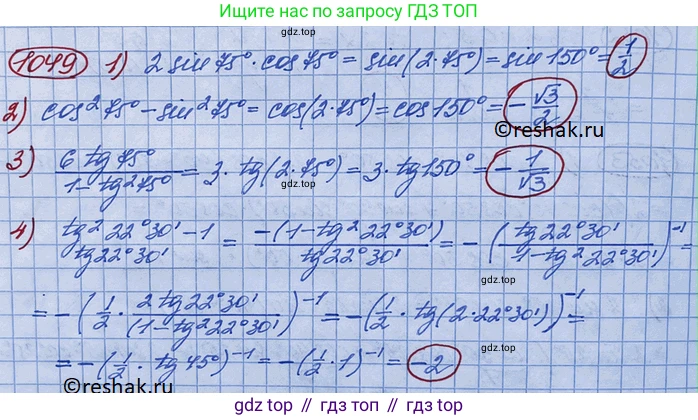 Ищите нас по запросу ГДЗ ТОП
1049 1) 2 sin 75° · cos 75° = sin(2·75°) = sin 150° = 1/2
2) cos² 75° - sin² 75° = cos(2·75°) = cos 150° = - √3/2
gdz.top
3) 6 tg 75° / 1 - tg² 75° = 3 · tg(2·75°) = 3 · tg 150° = - 1/√3
gdz.top
4) tg² 22°30' - 1 / tg 22°30' = -(1 - tg² 22°30') / tg 22°30' = - (tg 22°30' / 1 - tg² 22°30')⁻¹ =
gdz.top
= - (1/2 · 2 tg 22°30' / (1 - tg² 22°30'))⁻¹ = - (1/2 · tg(2·22°30'))⁻¹ =
= - (1/2 · tg 45°)⁻¹ = - (1/2 · 1)⁻¹ = -2
gdz.top
©reshak.ru
©reshak.ru
gdz top // гдз топ // gdz.top